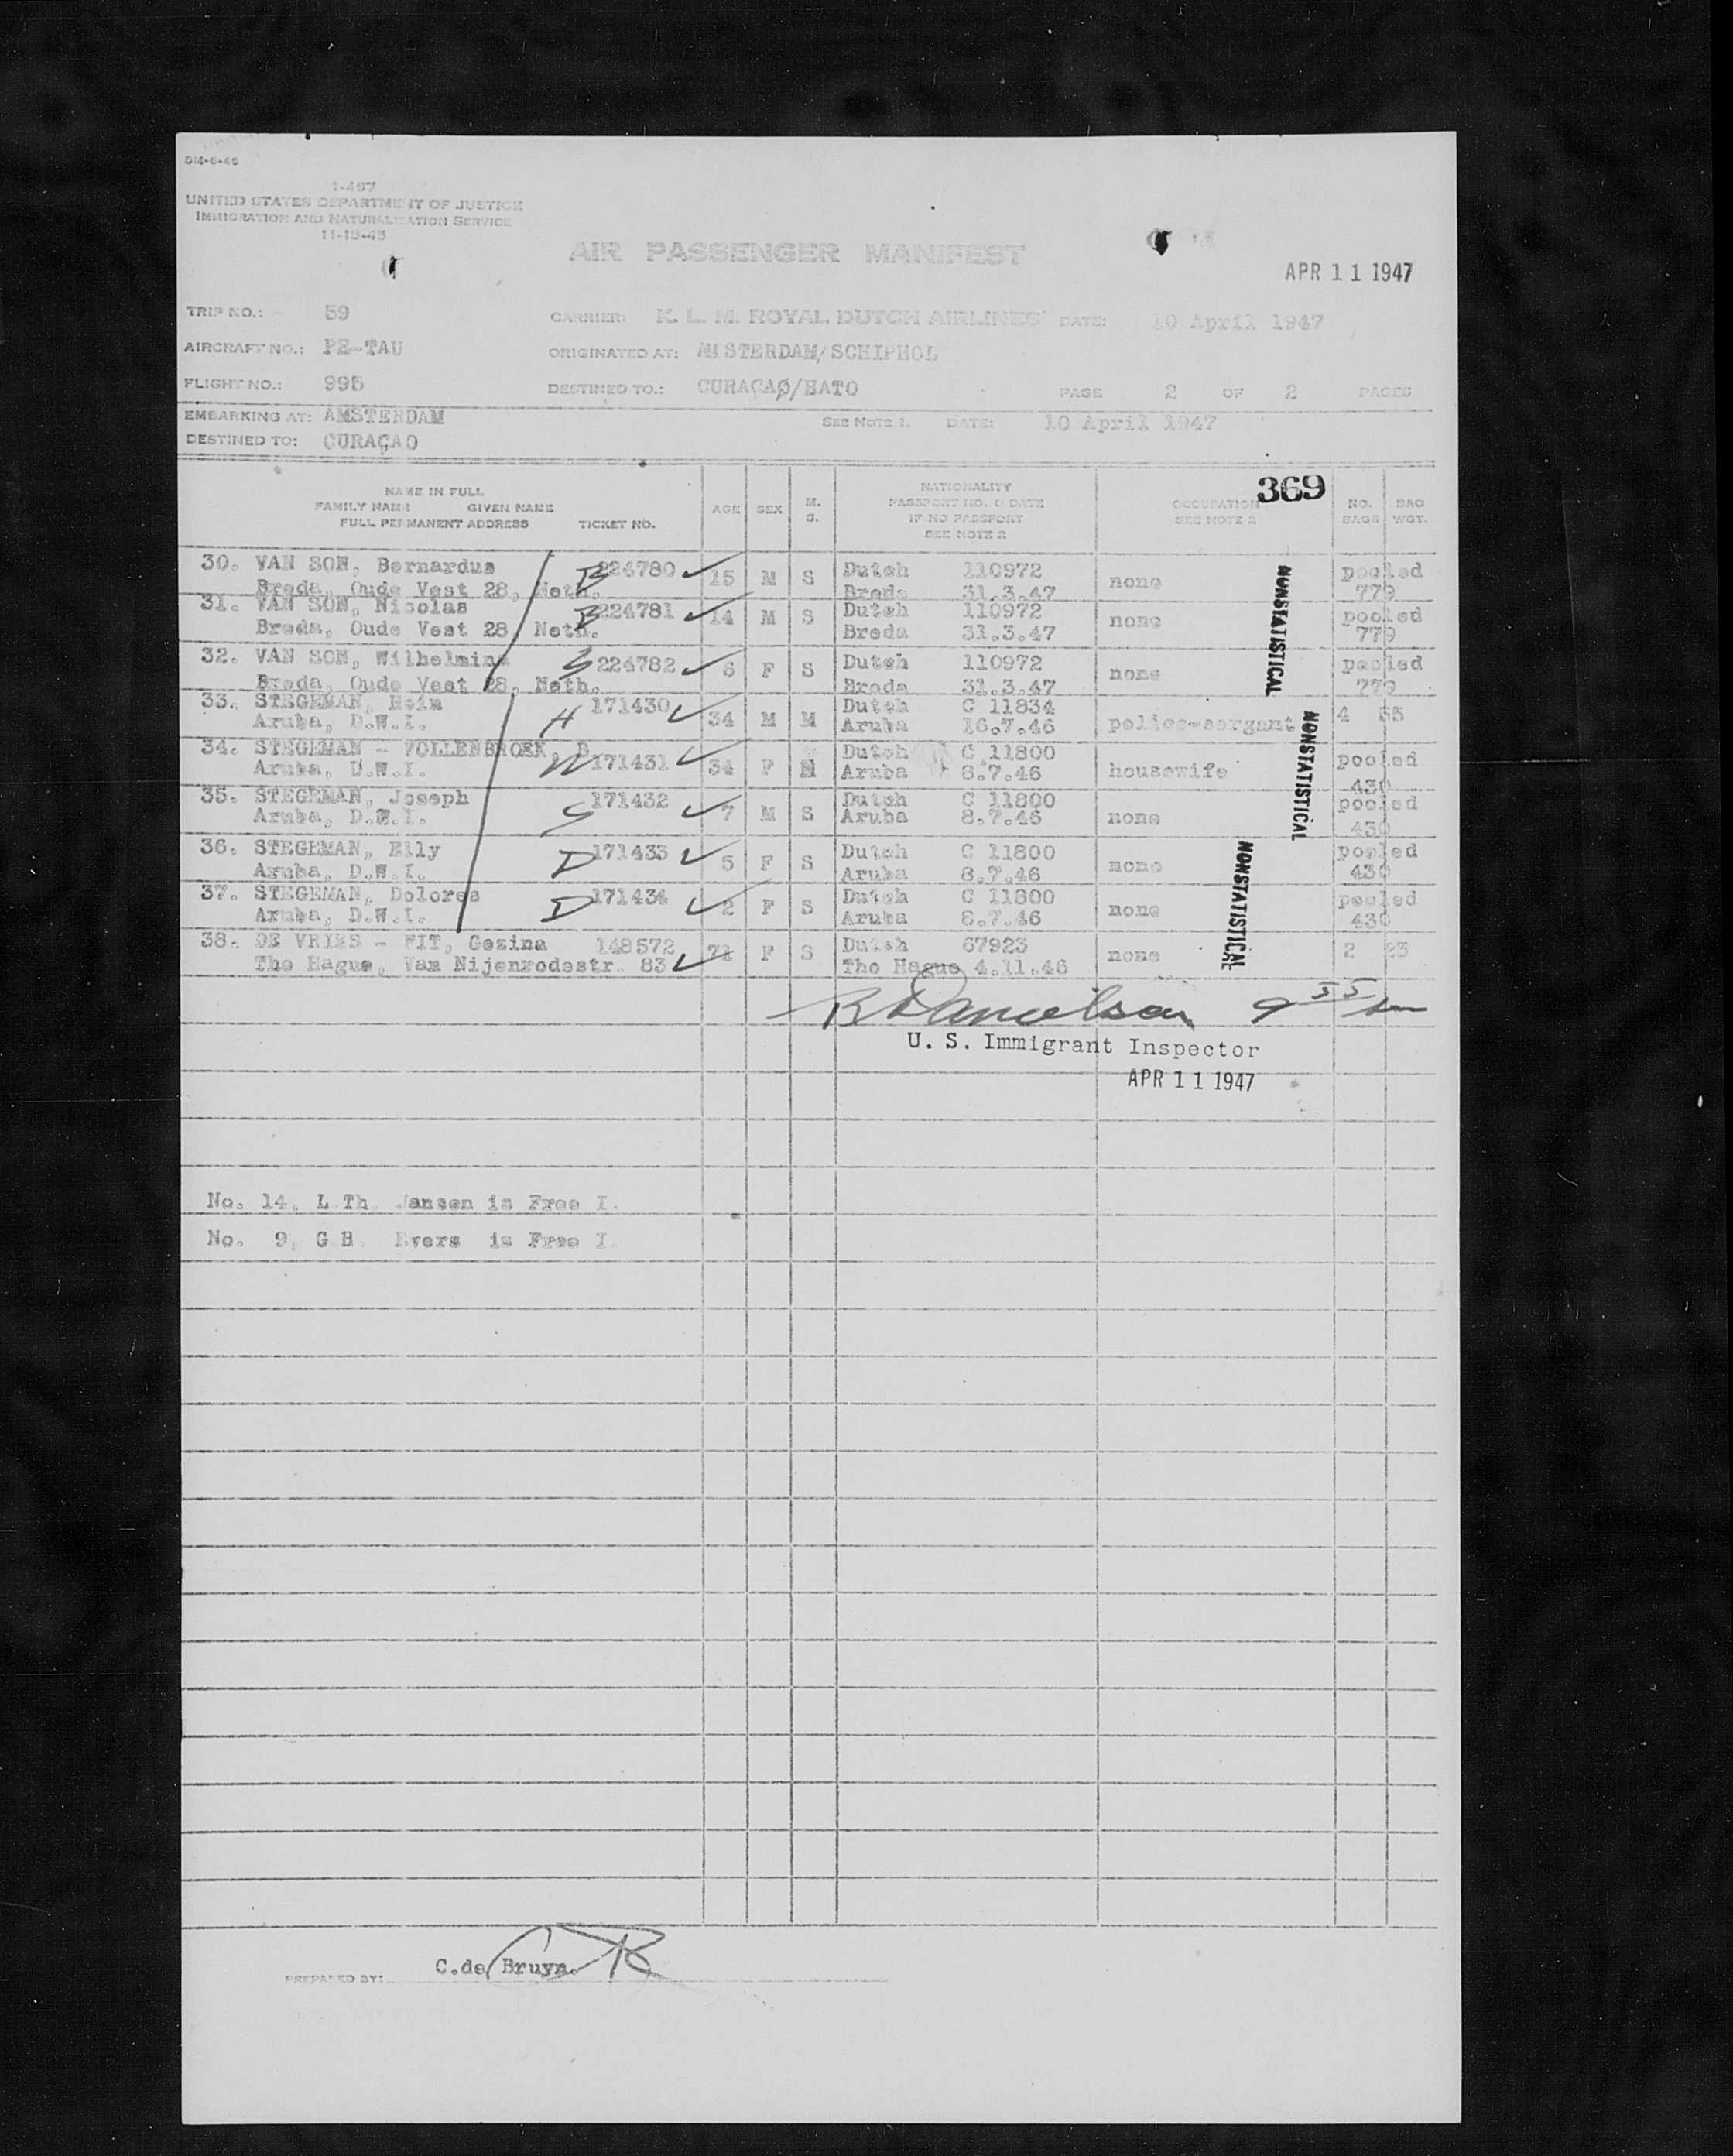 1-467
UNITED STATES DEPARTMENT OF JUSTICE
IMMIGRATION AND NATURALIZATION SERVICE
11-15-45
AIR PASSENGER MANIFEST
APR 11 1947
TRIP NO.: 59 CARRIER: K. L. M. ROYAL DUTCH AIRLINES DATE: 10 April 1947
AIRCRAFT NO.: PH-TAU ORIGINATED AT: AMSTERDAM/SCHIPHOL
FLIGHT NO.: 995 DESTINED TO.: CURAÇAO/HATO PAGE 2 OF 2 PAGES
EMBARKING AT: AMSTERDAM SEE NOTE 1. DATE: 10 April 1947
DESTINED TO: CURAÇAO
369
NAME IN FULL
FAMILY NAME GIVEN NAME
FULL PERMANENT ADDRESS TICKET NO. AGE SEX M. S. NATIONALITY PASSPORT NO. & DATE IF NO PASSPORT SEE NOTE 2 OCCUPATION SEE NOTE 2 NO. BAGS BAG WGT.
30. VAN SON, Bernardus B 224780 15 M S Dutch 110972 none pooled
Breda, Oude Vest 28, Neth. Breda 31.3.47 779
31. VAN SON, Nicolas B 224781 14 M S Dutch 110972 none pooled
Breda, Oude Vest 28, Neth. Breda 31.3.47 779
32. VAN SON, Wilhelmina S 224782 6 F S Dutch 110972 none pooled
Breda, Oude Vest 28, Neth. Breda 31.3.47 779
33. STEGEMAN, Hein H 171430 34 M M Dutch C 11834 police-sergant 4 55
Aruba, D.W.I. Aruba 16.7.46
34. STEGEMAN - VOLLENBROEK, B W 171431 34 F M Dutch C 11800 housewife pooled
Aruba, D.W.I. Aruba 8.7.46 430
35. STEGEMAN, Joseph S 171432 7 M S Dutch C 11800 none pooled
Aruba, D.W.I. Aruba 8.7.46 430
36. STEGEMAN, Elly D 171433 5 F S Dutch C 11800 none pooled
Aruba, D.W.I. Aruba 8.7.46 430
37. STEGEMAN, Dolores D 171434 2 F S Dutch C 11800 none pooled
Aruba, D.W.I. Aruba 8.7.46 430
38. DE VRIES - FIT, Gezina 148572 71 F S Dutch 67923 none 2 23
The Hague, Van Nijenrodestr. 83 The Hague 4.11.46
NONSTATISTICAL
NONSTATISTICAL
NONSTATISTICAL
R Danielson 9 55
U. S. Immigrant Inspector
APR 11 1947
No. 14, L.Th. Jansen is Free I.
No. 9, G B. Evers is Free I.
PREPARED BY: C.de Bruyn.